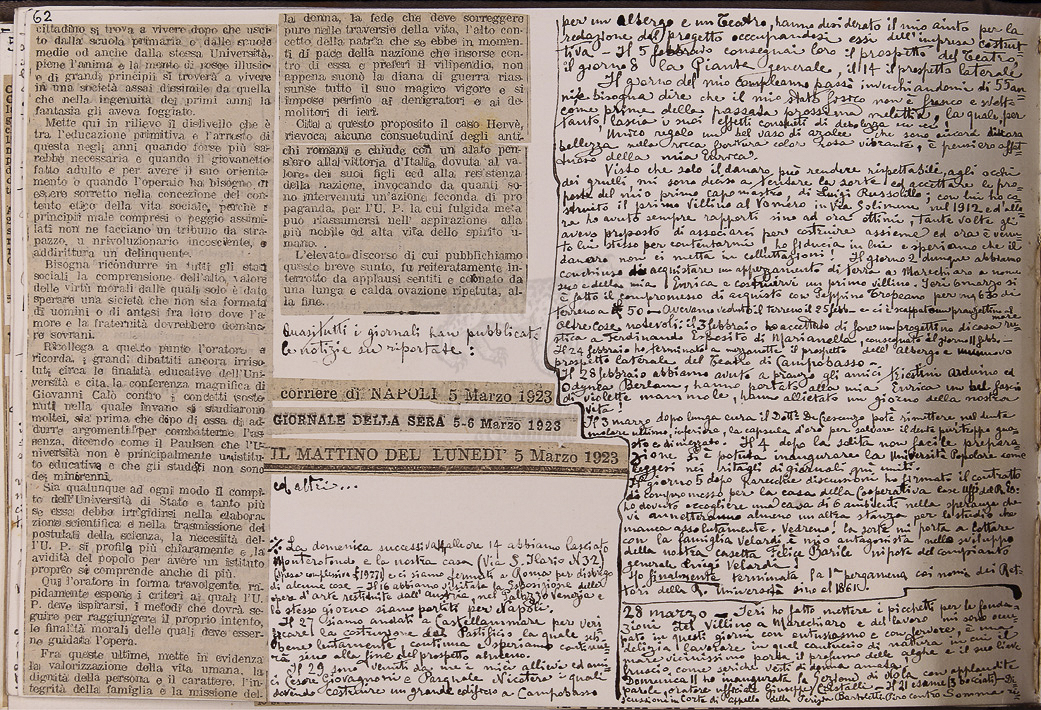 62
cittadino si trova a vivere dopo che uscito
dalla scuola primaria o dalle scuole
medie od anche dalla stessa Università,
piene l'anima e la mente di rosee illusioni
e di grandi principii si troverà a vivere
in una società assai dissimile da quella
che nella ingenuità dei primi anni la
fantasia gli aveva foggiato.
Mette qui in rilievo il dislivello che è
tra l'educazione primitiva e l'arresto di
questa negli anni quando forse più sarebbe
necessaria e quando il giovanetto
fatto adulto e per avere il suo orientamento
o quando l'operaio ha bisogno di
essere sorretto nella concezione del contenuto
etico della vita sociale, perchè i
principii male compresi o peggio assimilati
non ne facciano un tribuno da strapazzo,
u nrivoluzionario incosciente, o
addirittura un delinquente.
Bisogna ricondurre in tutti gli strati
sociali la comprensione dell'alto valore
delle virtù morali dalle quali solo è dato
sperare una sicietà che non sia formata
di uomini o di antesi fra loro dove l'amore
e la fraternità dovrebbero dominare
sovrani.
Ricollega a questo punto l'oratore e
ricorda, i grandi dibattiti ancora irrisoluti
circa le finalità educative dell'Università
e cita la conferenza magnifica di
Giovanni Calò contro i concetti sostenuti
nella quale invano si studiarono
molti, sia prima che dopo di essa di addurre
argomenti per combatterne l'assenza,
dicendo come il Paulsen che l'Università
non è principalmente un istituto
educativo e che gli studenti non sono
dei minorenni.
Sia qualunque ad ogni modo il compito
dell'Università di Stato e tanto più
se essa debba irrigidirsi nella elaborazione
scientifica e nella trasmissione dei
postulati della scienza, la necessità dell'U.
P. si profila più chiaramente e la
avidità del popolo per avere un istituto
proprio si comprende anche di più.
Qui l'oratore in forma travolgente, rapidamente
espone i criteri ai quali l'U.
P. deve ispirarsi, i metodi che dovrà seguire
per raggiungere il proprio intento,
le finalità morali delle quali deve esserne
guidata l'opera.
Fra queste ultime, mette in evidenza
la valorizzazione della vita umana, la
dignità della persona e il carattere, l'integrità
della famiglia e la missione del-
la donna, la fede che deve sorreggere
pure nelle traversie della vita, l'alto concetto
della patria che se ebbe in momenti
di pace della nazione che insorse contro
di essa e preferì il vilipendio, non
appena suonò la diana di guerra riassunse
tutto il suo magico vigore e si
impose perfino ai denigratori e ai demolitori
di ieri.
Cita a questo proposito il caso Hervè,
rievoca alcune consuetudini degli antichi
romani e chiude con un alato pensiero
alla vittoria d'Italia dovuta al valore
dei suoi figli ed alla resistenza
della nazione, invocando da quanti sono
intervenuti un'azione feconda di propaganda,
per l'U. P. la cui fulgida meta
può riassumersi nell'aspirazione alla
più nobile ed alta vita dello spirito umano.
L'elevato discorso di cui pubblichiamo
questo breve sunto, fu reiteratamente interrotto
da applausi sentiti e coronato da
una lunga e calda ovazione ripetuta, alla
fine.
Quasi tutti i giornali han pubblicate
le notizie su riportate:
corriere di NAPOLI 5 Marzo 1923
GIORNALE DELLA SERA 5-6 Marzo 1923
IL MATTINO DEL LUNEDI' 5 Marzo 1923
ed altri...
La domenica successiva alle ore 14 abbiamo lasciato
Monterotondo e la nostra casa (Via S. Ilario N 32)
e ci siamo fermati a Roma per disbrigo
di altre cose. Ivi abbiamo visitato la Esposizione delle
opere d'arte restituite dall'Austria, nel Palazzo Venezia e
lo stesso giorno siamo partiti per Napoli.
Il 27 siamo andati a Castellammare per verificare
la costruzione del Pastificio, la quale sebbene
lentamente continua e speriamo continuerà
sino alla fine del prospetto almeno.
Il 29 sono venuti da me i miei allievi ed amici
Cesare Giovagnoni e Pasquale Nicotera i quali
dovendo costruire un grande edificio a Campobasso
per un albergo e un Teatro, hanno desiderato il mio aiuto per la
redazione del progetto occupandosi essi dell'impresa costruttiva
- Il 5 febbraio consegnai loro il prospetto del Teatro,
il giorno 8 la Pianta generale, il 14 il prospetto laterale
Il giorno del mio compleanno passò invecchiandomi di 55 anni
e bisogna dire che il mio stato fisico non è fresco e svelto
come prima della passata prossima malattia, la quale, per
tanto, lascia i suoi effetti consueti di debolezza in me.
Unico regalo un bel vaso di azalee, che sono ancora di rara
bellezza nella ricca fioritura color rosa vibrante, è pensiero affettuoso
della mia Enrica.
Visto che solo il danaro può rendere rispettabile, agli occhi
dei grulli, mi sono deciso a tentare la sorte ed accettare le proposte
del mio primo capomastro Luigi Russolillo, con lui ho costruito
il primo Villino al Vomero in Via Solimene nel 1912 ed allora
ho avuto sempre rapporti sino ad ora ottimi, tante volte gli
avevo proposto di associarci per costruire assieme ed ora è venuto
lui stesso per contentarmi! ho fiducia in lui e speriamo che il
danaro non ci metta in colluttazioni! Il giorno 2 dunque abbiamo
conchiuso di acquistare un appezzamento di terra a Marechiaro a nome
suo e della mia Enrica e costruirvi un primo villino. Ieri 6 marzo si
è fatto il compromesso di acquisto con Peppino Tropeano per mq 630 di
terreno a £ 50 - Avevamo veduto il terreno il 25 febb.
Altre cose notevoli: il 1 febbraio ho accettato di fare un progettino di casa rustica
a Ferdinando Esposito di Marianella, consegnato il giorno 11 febb.
Il 24 febbraio ho terminato a mezzanotte il prospetto dell'Albergo e un nuovo
prospetto laterale del Teatro di Campobasso -
Il 28 febbraio abbiamo avuto a pranzo gli amici Ricatini Arduino ed
Odynea Berlam, hanno portato alla mia Enrica un bel fascio
di violette mammole, hanno allietato un giorno della nostra
vita!
Il 3 marzo dopo lunga cura il Dott. De Cesenzo potè rimettere nel dente
molare ultimo, inferiore, la capsula d'oro per salvare il dente purtroppo guasto
e dimezzato. Il 4 dopo la solita non facile preparazione
si è potuta inaugurare la Università Popolare come
leggesi nei ritagli di giornali quì uniti.
Il giorno 5 dopo parecchie discussioni ho firmato il contratto
di compromesso per la casa della Cooperativa case
ho dovuto accogliere una casa di 6 ambienti nella speranza che
vi annetteranno almeno un'altra stanza per lo studio che
manca assolutamente. Vedremo! la sorte mi porta a lottare
con la famiglia Velardi e mio antagonista nello sviluppo
della nostra casetta Felice Barile nipote del compianto
generale Luigi Velardi!
Ho finalmente terminata la 1ª pergamena coi nomi dei Rettori
della R. Università sino al 1861.
28 marzo - Ieri ho fatto mettere i picchetti per le fondazioni
del Villino a Marechiaro e del lavoro mi sono occupato
in questi giorni con entusiasmo e con fervore, è una
delizia lavorare in quel cantuccio di natura in cui il
mare vicinissimo porta il profumo delle alghe e il suo lieve
fruscio come seriche vesti di donna amata.
Domenica 11 ho inaugurata la Sezione di Nola con applaudite
parole, oratore ufficiale Giuseppe Cristalli - Il 21 esame (3 bocciati) - Discussione
in Corte di appello della Perizia Bartoletti Piro contro Somma